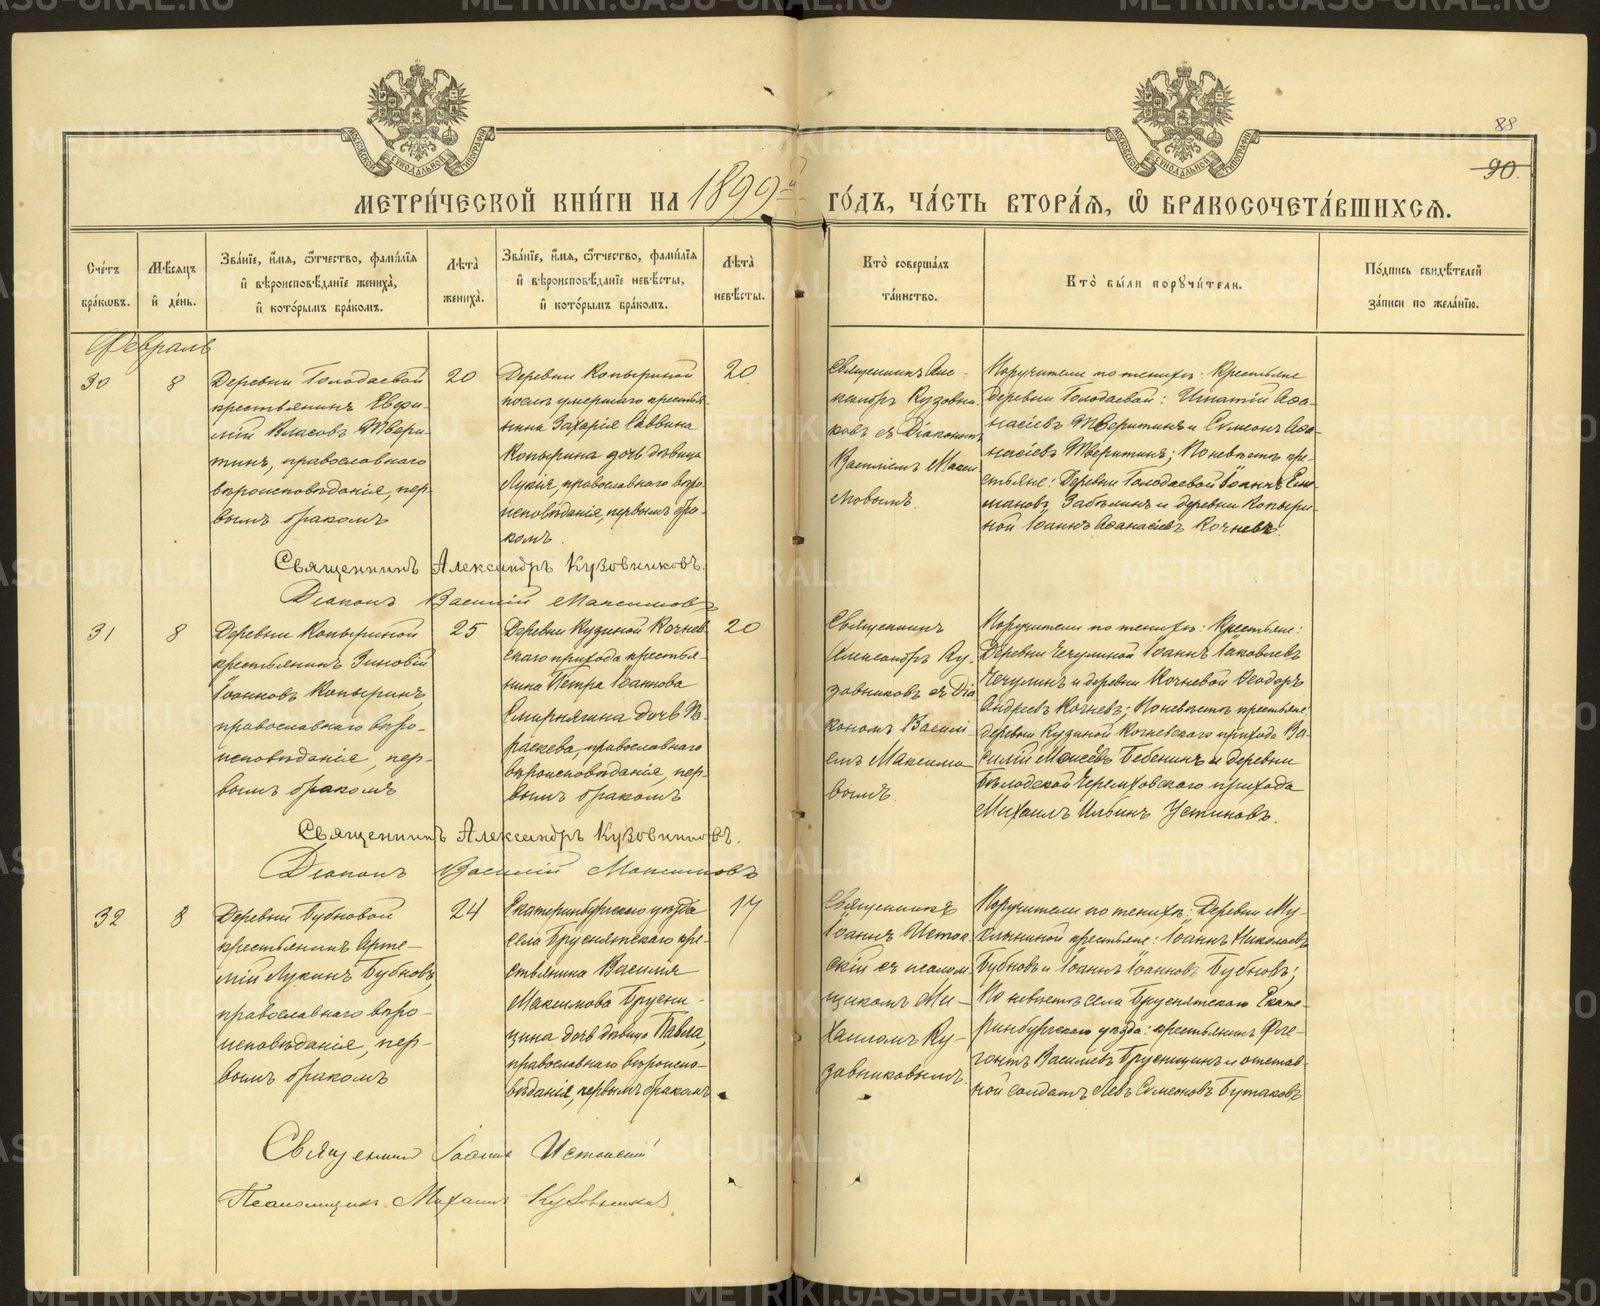 88
90.
МЕТРИ́ЧЕСКОЙ КНИ́ГИ НА 1899й ГО́ДЪ, ЧА́СТЬ ВТОРА́Я, Ѡ БРАКОСОЧЕТА́ВШИХСЯ.
Сче́тъ бра́кωвъ.
Мѣ́сяцъ и҆ де́нь.
Зва́нїе, и҆́мя, ѻ҆́тчество, фами́лїя и҆ вѣроисповѣ́данїе жениха̀, и҆ кото́рымъ бра́комъ.
Лѣ́та̀ жениха̀.
Зва́нїе, и҆́мя, ѻ҆́тчество, фами́лїя и҆ вѣроисповѣ́данїе невѣ́сты, и҆ кото́рымъ бра́комъ.
Лѣ́та̀ невѣ́сты.
Кто̀ соверша́лъ та́инство.
Кто̀ бы́ли порꙋчи́тели.
По́дпись свидѣ́телей за́писи по жела́нїю.
Февраль
30
8
Деревни Голодаевой
крестьянинъ Евфи-
мій Власовъ Твери-
тинъ, православнаго
вѣроисповѣданія, пер-
вымъ бракомъ
20
Деревни Копыриной
послѣ умершаго крестья-
нина Захарія Саввина
Копырина дочь дѣвица
Лукія, православнаго вѣро-
исповѣданія, первымъ бра-
комъ.
20
Священникъ Але-
ксандръ Кузовни-
ковъ съ Діакономъ
Василіемъ Макси-
мовымъ.
Поручители по женихѣ: Крестьяне
Деревни Голодаевой: Игнатій Аѳа-
насіевъ Тверитинъ и Сѵмеонъ Аѳа-
насіевъ Тверитинъ; По невѣстѣ кре-
стьяне: Деревни Голодаевой Іоаннъ
Забѣлинъ и деревни Копыри-
ной Іоаннъ Аѳанасіевъ Кочневъ.
Священникъ Александръ Кузовниковъ.
Діаконъ Василій Максимовъ
31
8
Деревни Копыриной
крестьянинъ Зиновій
Іоанновъ Копыринъ,
православнаго вѣро-
исповѣданія, пер-
вымъ бракомъ
25
Деревни Кузиной Кочнев-
скаго прихода крестья-
нина Петра Іоаннова
Смирнягина дочь Па-
раскева, православнаго
вѣроисповѣданія, пер-
вымъ бракомъ
20
Священникъ
Александръ Ку-
зовниковъ съ Діа
кономъ Василі-
емъ Максимо
вымъ.
Поручители по женихѣ: Крестьяне:
Деревни Чечулиной Іоаннъ Іаковлевъ
Чечулинъ и деревни Кочневой Ѳеодоръ
Андреевъ Кочневъ; По невѣстѣ крестьяне
деревни Кузиной Кочневскаго прихода Ва-
силій Моисеевъ Бебенинъ и деревни
Черемховскаго прихода
Михаилъ Ильинъ Устиновъ.
Священникъ Александръ Кузовниковъ.
Діаконъ Василій Максимовъ
32
8
Деревни Бубновой
крестьянинъ Арте-
мій Лукинъ Бубновъ,
православнаго вѣро-
исповѣданія, пер-
вымъ бракомъ
24
Екатеринбургскаго уѣзда
села Бруснятскаго кре-
стьянина Василія
Максимова Брусни-
цина дочь дѣвица Павла,
православнаго вѣроиспо-
вѣданія, первымъ бракомъ
17
Священникъ
Іоаннъ Исток-
скій съ псалом-
щикомъ Ми-
хаиломъ Ку-
зовниковымъ.
Поручители по женихѣ: Деревни Му-
хлыниной крестьяне: Іоаннъ Николаевъ
Бубновъ и Іоаннъ Іоанновъ Бубновъ;
По невѣстѣ села Бруснятскаго Екате-
ринбургскаго уѣзда: крестьянинъ Фле-
гонтъ Василіевъ Брусницинъ и отстав-
ной солдатъ Левъ Сѵмеоновъ Бутаковъ
Священникъ Іоаннъ Истокскій
Псаломщикъ Михаилъ Кузовниковъ